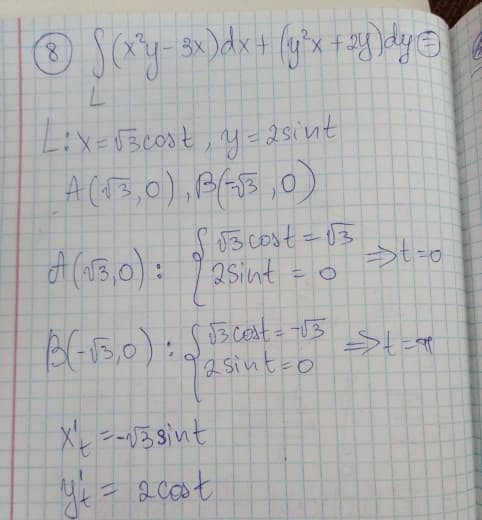 ⑧ ∫ (x²y - 3x)dx + (y²x + 2y)dy =
L
L: x = √3 cost, y = 2sint
A(√3, 0), B(-√3, 0)
A(√3, 0): { √3 cost = √3
2sint = 0 => t = 0
B(-√3, 0): { √3 cost = -√3
2sint = 0 => t = π
x't = -√3 sint
y't = 2cost